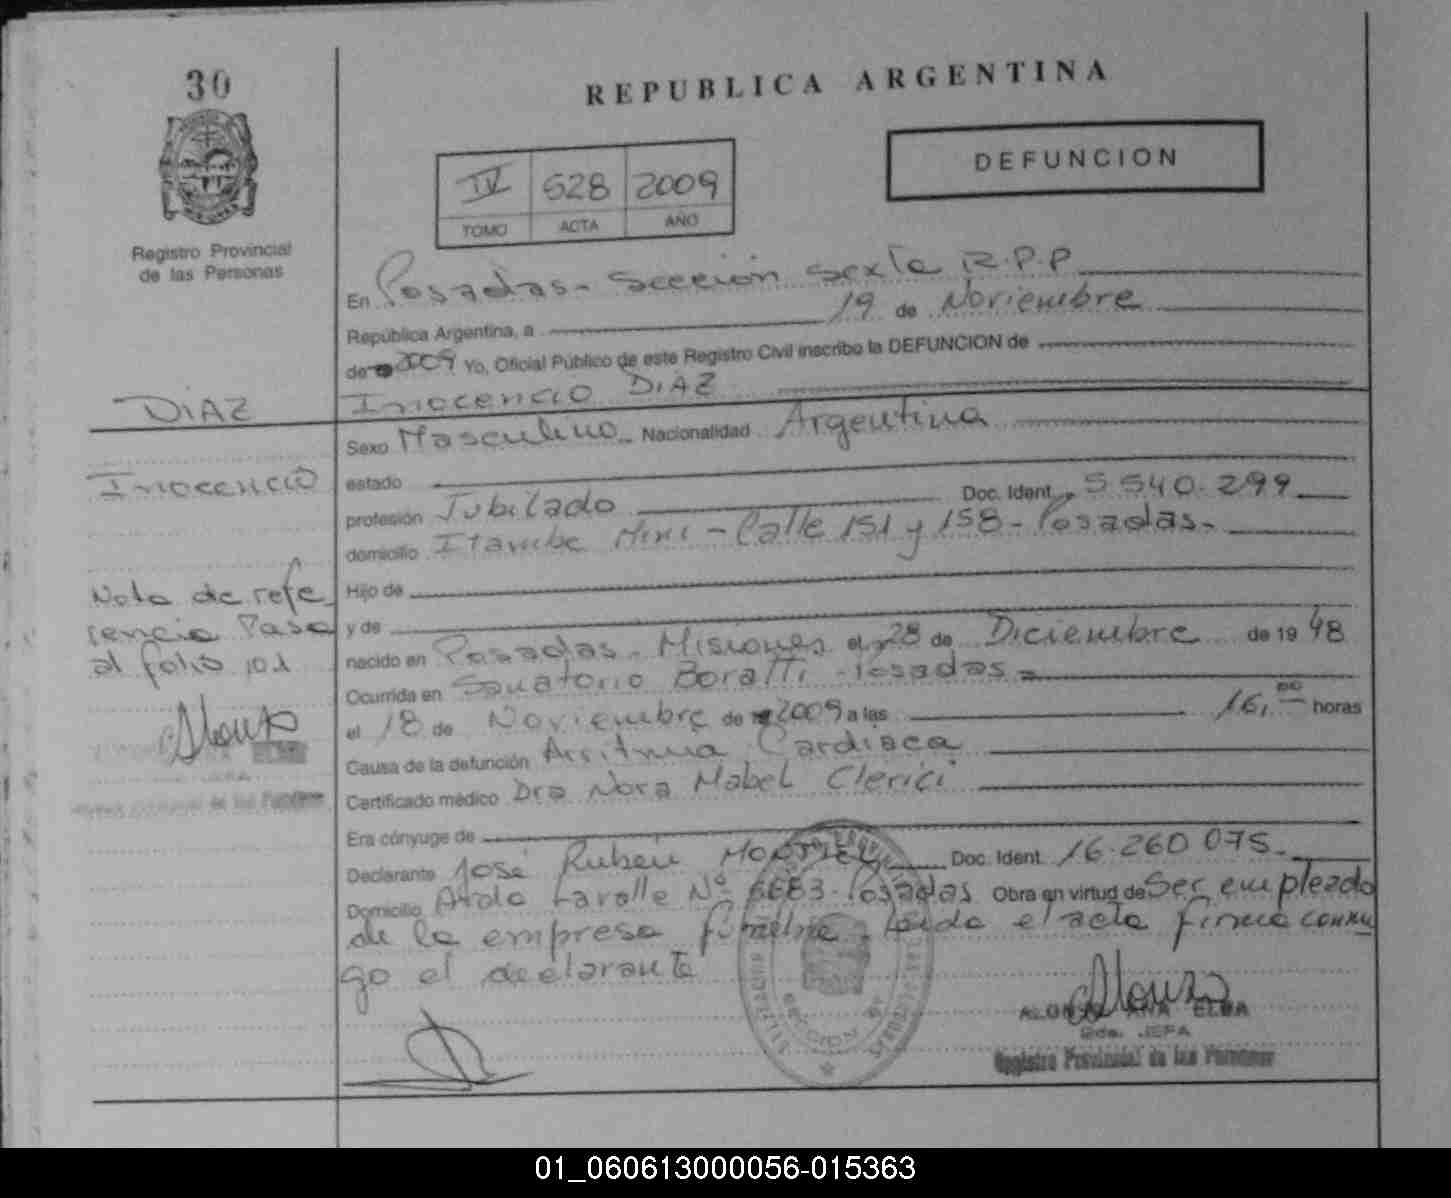 30
REPUBLICA ARGENTINA
DEFUNCION
IV 528 2009
TOMO ACTA AÑO
Registro Provincial
de las Personas
En Posadas - Sección Sexta R.P.P
República Argentina, a 19 de Noviembre
de 2009 Yo, Oficial Público de este Registro Civil inscribo la DEFUNCION de
Inocencio DIAZ
DIAZ
Inocencio
Nota de refe
rencia Pasa
al folio 101
Alonso
Sexo Masculino Nacionalidad Argentina
estado
profesión Jubilado Doc. Ident. 5.540.299
domicilio Itaembe Mini - Calle 151 y 158 - Posadas -
Hijo de
y de
nacido en Posadas - Misiones el 28 de Diciembre de 19 48
Ocurrida en Sanatorio Boratti - Posadas -
el 18 de Noviembre de 2009 a las 16,00 horas
Causa de la defunción Arritmia Cardiaca
Certificado médico Dra Nora Mabel Clerici
Era cónyuge de
Declarante José Rubén Doc. Ident. 16.260.075
Domicilio Avda Lavalle Nº 6683 - Posadas Obra en virtud de Ser empleado
de la empresa leida el acta firma conmi
go el declarante
Alonso
ALONSO ANA ELBA
2da. JEFA
Registro Provincial de las Personas
01_060613000056-015363